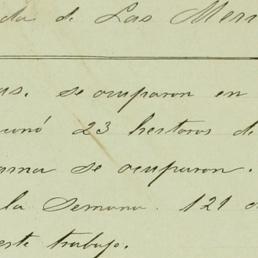 da de Las Mer
as. se ocuparon en
23 hectoros de
se ocuparon.
la Semana. 121
este trabajo.